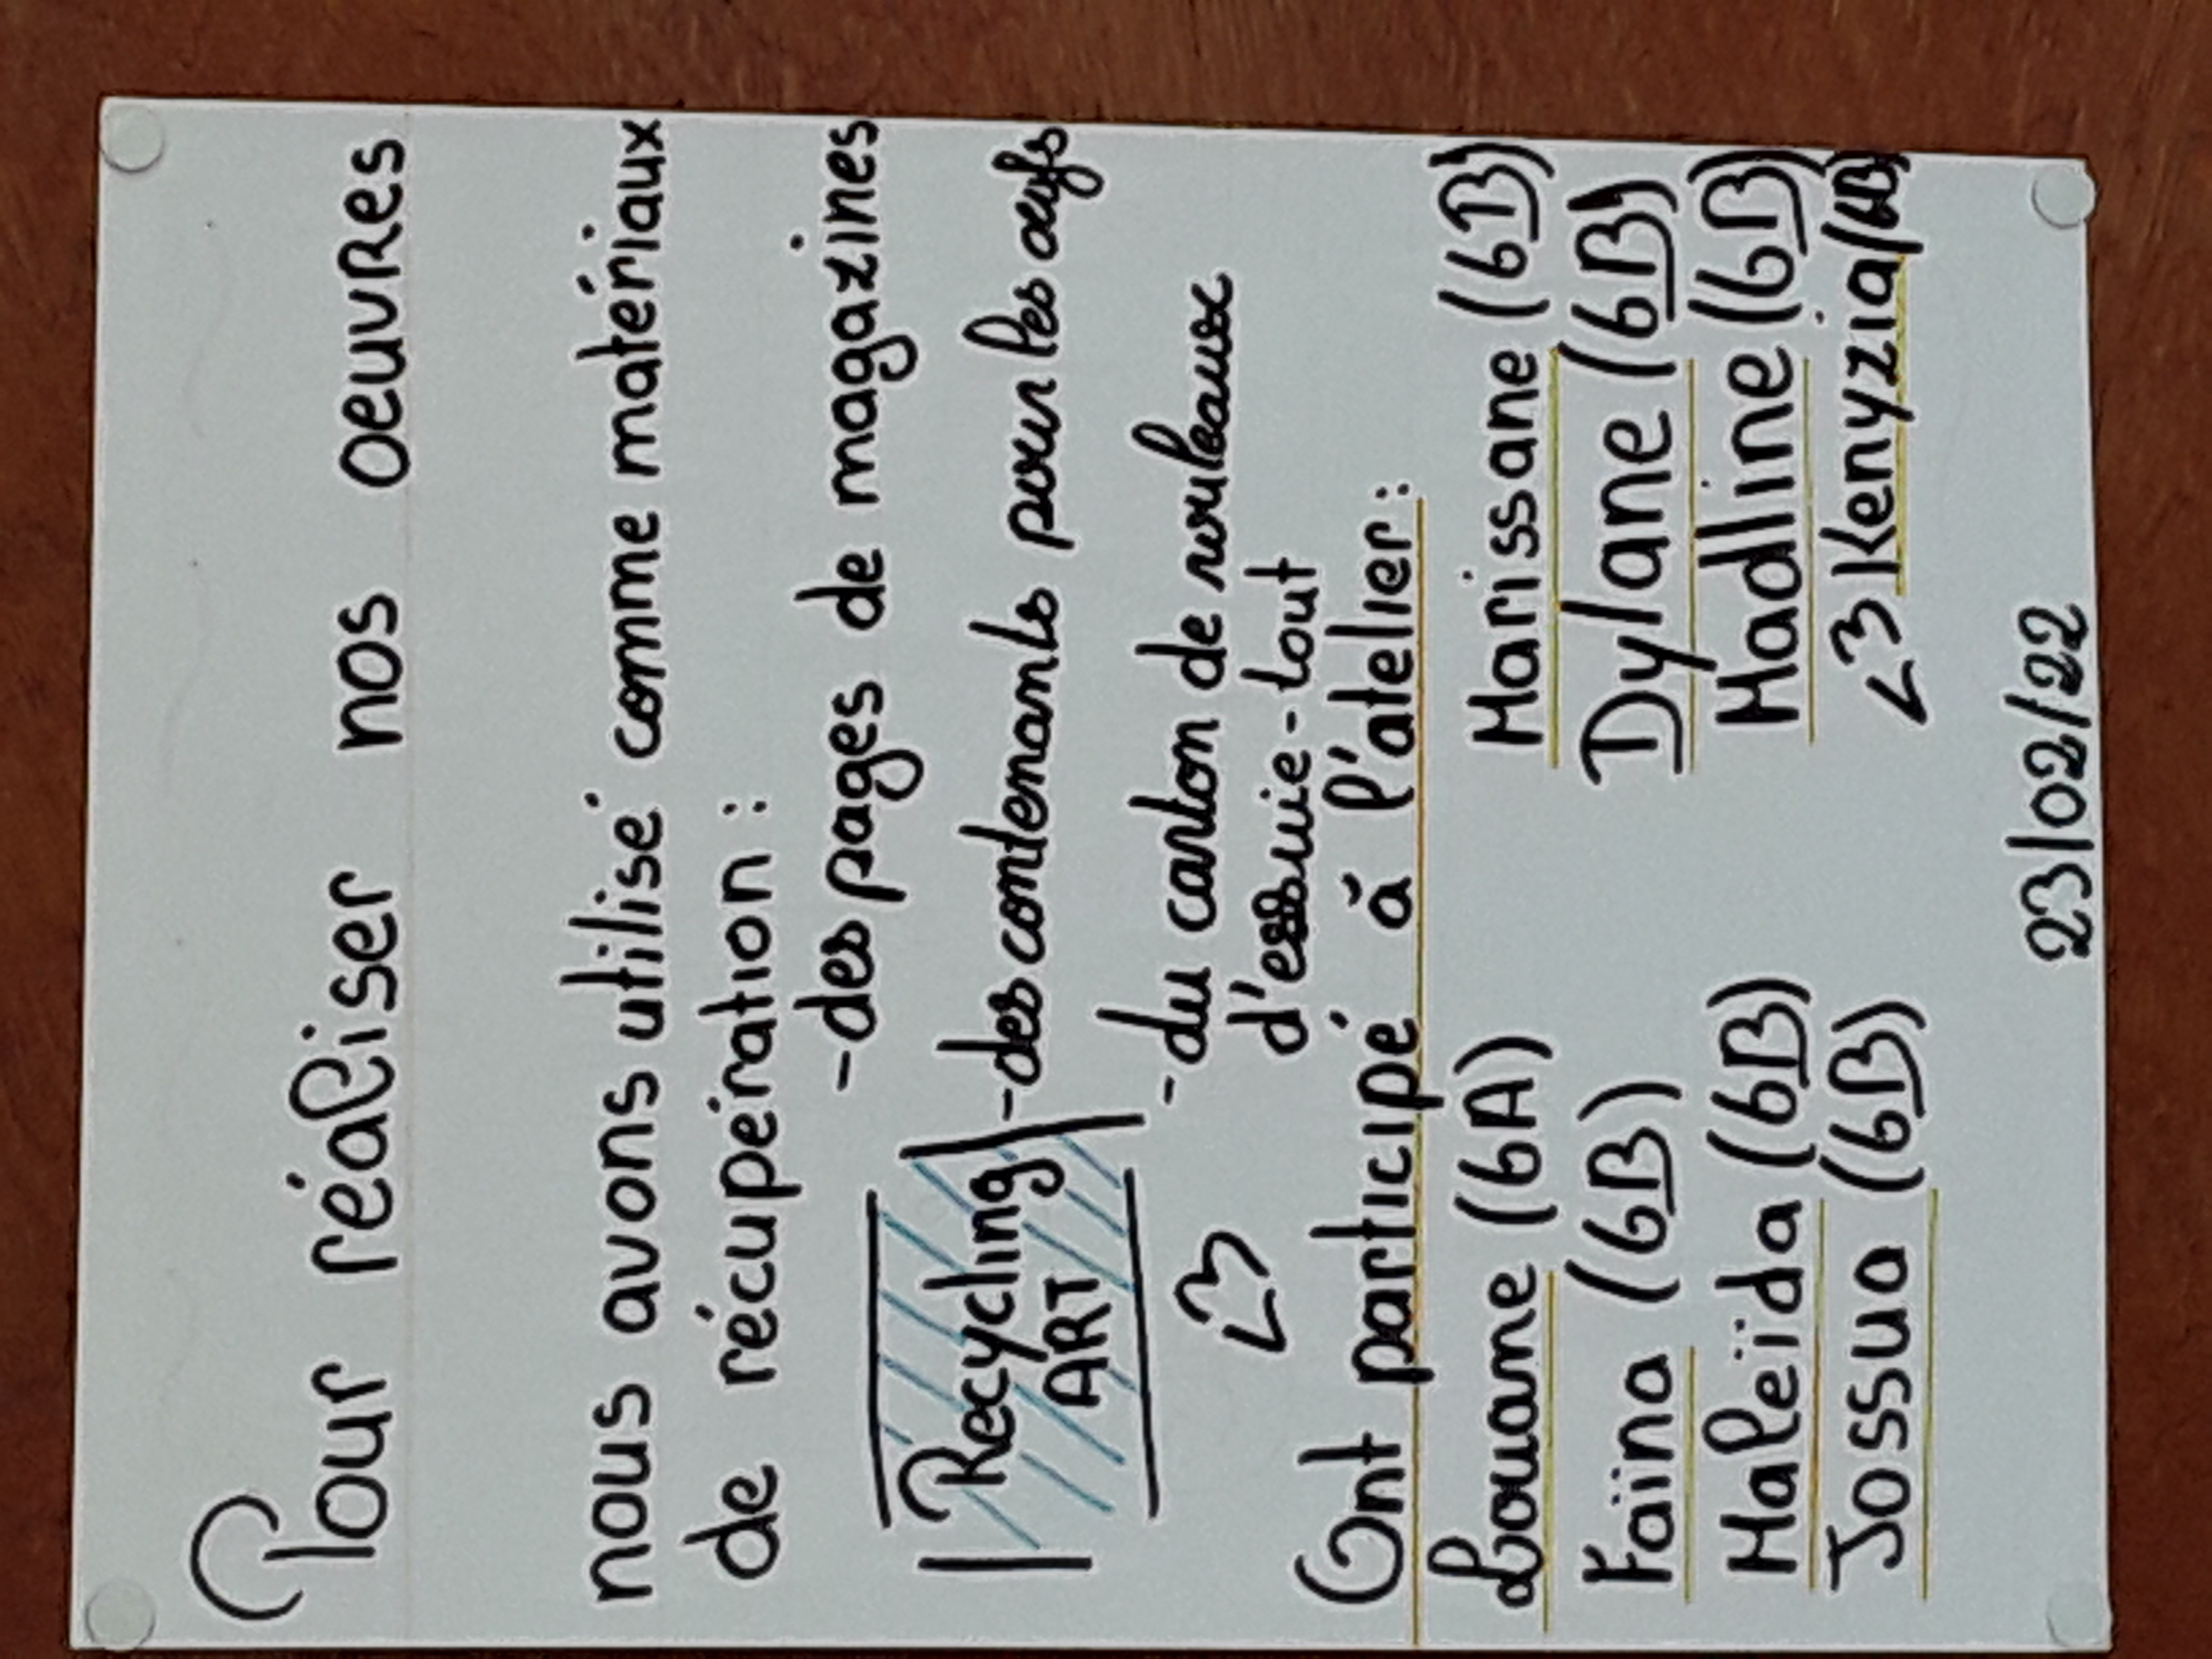 Pour réaliser nos oeuvres
nous avons utilisé comme matériaux
de récupération :
-des pages de magazines
-des contenants pour les œufs
-du carton de rouleaux
d'essuie-tout
Recycling
ART
<3
Ont participé à l'atelier :
Louane (6A)
Faïna (6B)
Maleïda (6B)
Jossua (6B)
Marissane (6B)
Dylane (6B)
Madline (6B)
<3 Kenyzia (6B)
23/02/22